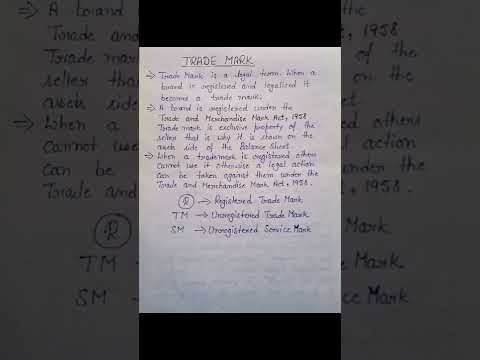 TRADE MARK
⇒ Trade Mark is a legal term. When a
brand is registered and legalised it
becomes a trade mark.
⇒ A brand is registered under the
Trade and Merchandise Mark Act, 1958
Trade mark is exclusive property of the
seller that is why it is shown on the
assets side of the Balance Sheet.
⇒ When a trademark is registered others
cannot use it otherwise a legal action
can be taken against them under the
Trade and Merchandise Mark Act, 1958.
Ⓡ → Registered Trade Mark
TM → Unregistered Trade Mark
SM → Unregistered Service Mark